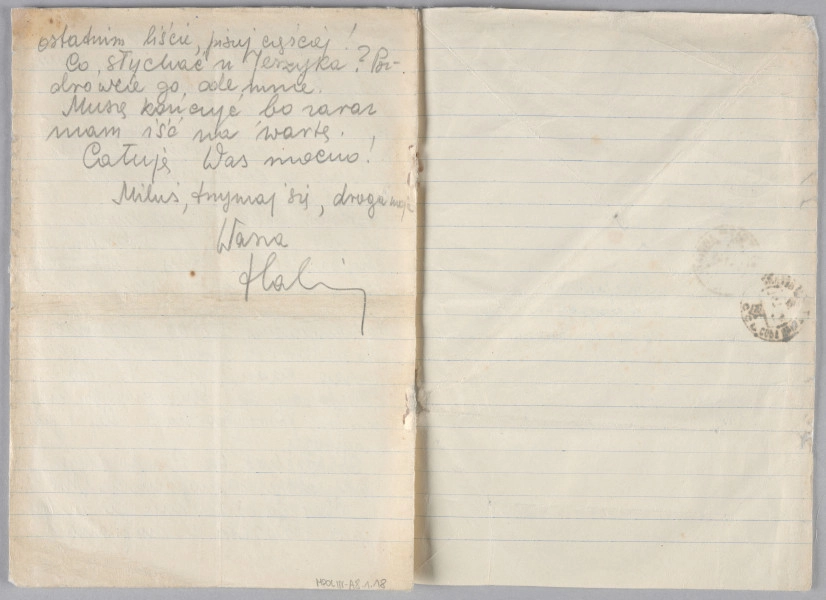 ostatnim liście, pisuj częściej!
Co słychać u Jerzyka? Poz-
drówcie go ode mnie.
Muszę kończyć bo zaraz
mam iść na wartę.
Całuję Was mocno!
Miluś, trzymaj się, droga moja
Wasza
Hali